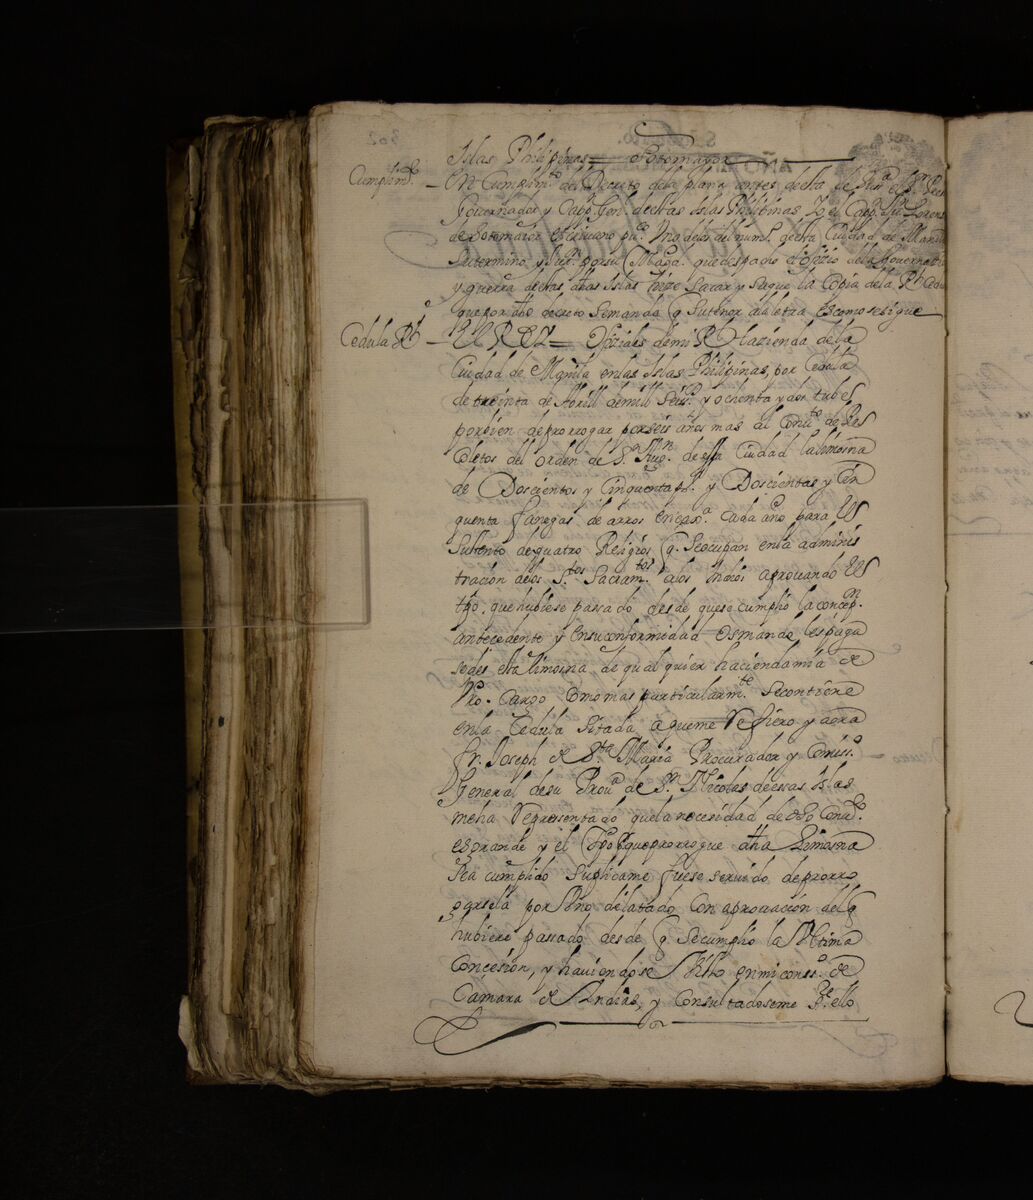 Islas Philipinas = Sotomayor
Cumplimto. – En Cumplimto. del Decreto dela plana antes desta de Su Sa. el Sr. Pres
Governador y Capn. Genl. destas Islas Philipinas Yo el Capn. Ju. Lorenso
de Sotomaior escrivano puco. Uno delos del numo. desta Ciudad de Manila
Sutermino y Jurn. por su Magd. que despacho el ofizio dela Governacion
y guerra destas dhas Islas hize sacar y saque la Copia dela Rl. Cedu
que por dho decreto Semanda q Sutenor ala letra escomosesigue
Cedula Rl. – EL REY = Ofiziales demi Rl Hazienda dela
Ciudad de Manila enlas Islas Philipinas, por Cedula
de treinta de Abrill demill Seiso. y ochenta y dos tube
porbien deprorrogar porseis años mas al Convto. de Re
coletos del orden de Sn. Augn. de essa Ciudad la limosna
de Doscientos y Cinquenta ps. y Doscientas y Cin
quenta fanegas de arros encasa. Cada año para el
Sustento de quatro Religios q Seocupan enla adminis
tracion delos Stos. Sacramtos. alos Indios aprovando el
tpo. que hubiese passado desde quese cumplio la concepn.
antecedente y ensuconformidad os mando les paga
sedes esta limosna de qual quier hacienda mia de
Vro. Cargo Como mas particularmte. Secontiene
enla Cedula sitada aqueme Refiero y agora
fr. Joseph de Sta. Maria Procurador y Comisso.
General desu Prova. de Sn. Nicolas de essas Islas
meha Representado quela necesidad de dho Convo.
es grande y el tpo porque prorrogue dha Limosna
sea cumplido Suplicame fuese servido deprorro
garsela por Uno dilatado Con aprovacion del q
hubiere passado desde q Secumplio la Ultima
Concesion, y haviendose Visto en mi conso. de
Camara de Indias, y Consultadoseme Sre. ello